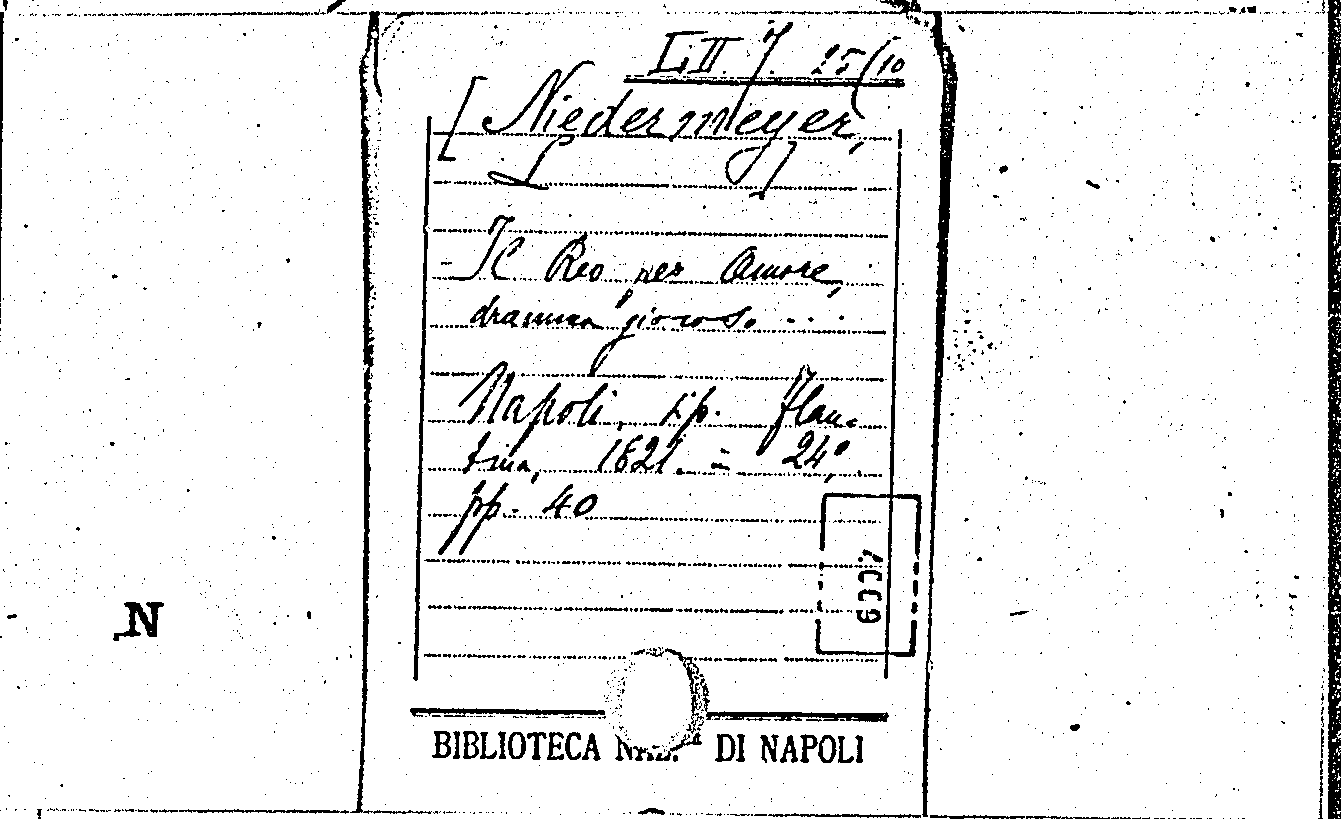 L.II. 7. 25(10
[Niedermeyer,
L]
- Il Reo per Amore,
dramma giocoso ...
Napoli, tip. Flau-
tina, 1821. - 24°,
pp. 40
6007
N
BIBLIOTECA NAZ. DI NAPOLI